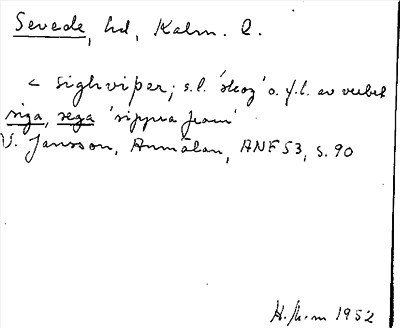 Sevede, hd, Kalm. l.
< sighviþer; s.l. 'skog' o. f.l. av verbet
siga, sega 'sippra fram'
V. Jansson, Anmälan, ANF 53, s. 90
1952